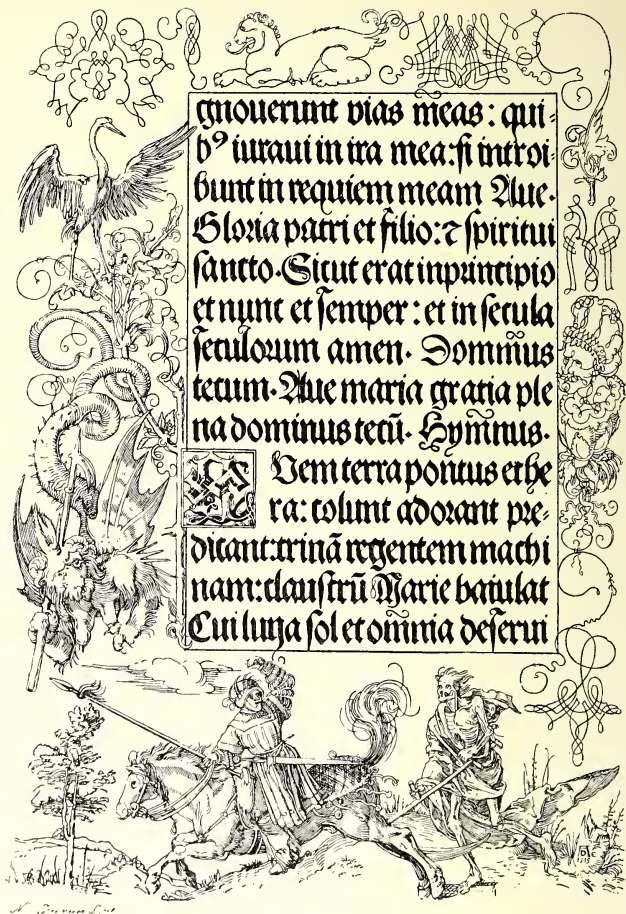 gnouerunt vias meas: qui⸗
bꝰ iuraui in ira mea: si introi⸗
bunt in requiem meam Aue.
Gloria patri et filio: ⁊ spiritui
sancto. Sicut erat inprincipio
et nunt et semper: et in secula
seculorum amen. Dominus
tecum. Aue maria gratia ple
na dominus tecū. Hymnus.
Vem terra pontus ethe
ra: colunt adorant pre⸗
dicant: trinā regentem machi
nam: claustrū Marie baiulat
Cui luna sol et omnia deserui